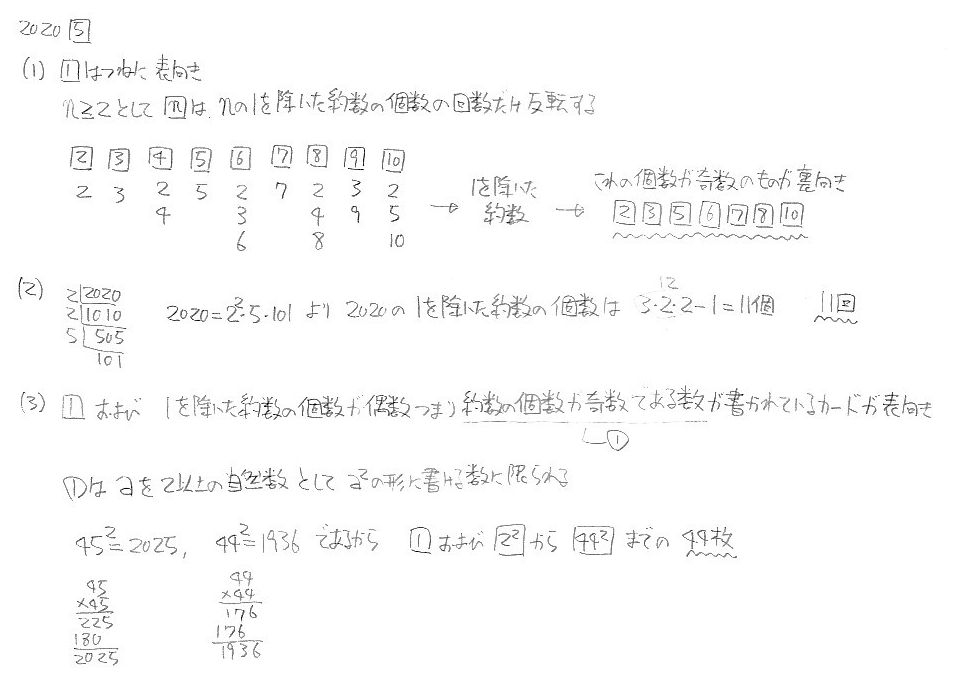 2020 5
(1) 1はつねに表向き
n≧2として nは、nの1を除いた約数の個数の回数だけ反転する
2 3 4 5 6 7 8 9 10
2 3 2 5 2 7 2 3 2 → 1を除いた約数 → これの個数が奇数のものが裏向き
4 3 4 9 5 2 3 5 6 7 8 10
6 8 10
(2) 2020=2²・5・101 より 2020の1を除いた約数の個数は 3・2・2-1=11個 11回
12
2 2020
2 1010
5 505
101
(3) 1 および 1を除いた約数の個数が偶数つまり約数の個数が奇数である数が書かれているカードが表向き
①
①は aを2以上の自然数として a²の形に書ける数に限られる
45²=2025, 44²=1936 であるから 1 および 2² から 44² までの 44枚
45
×45
225
180
2025
44
×44
176
176
1936